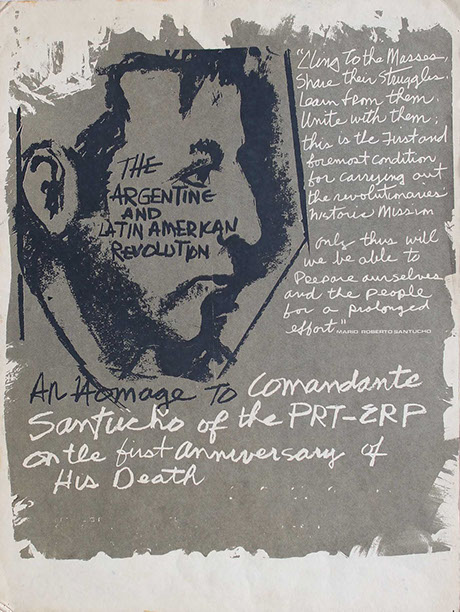 THE
ARGENTINE
AND
LATIN AMERICAN
REVOLUTION
"Cling To the Masses,
Share their Struggles.
Learn from them.
Unite with them;
this is the First and
foremost condition
for carrying out
the revolutionaries'
historic Mission
only thus will
we be able to
Prepare ourselves
and the people
for a prolonged
effort" MARIO ROBERTO SANTUCHO
An Homage To Comandante
Santucho of the PRT-ERP
on the first Anniversary of
His Death